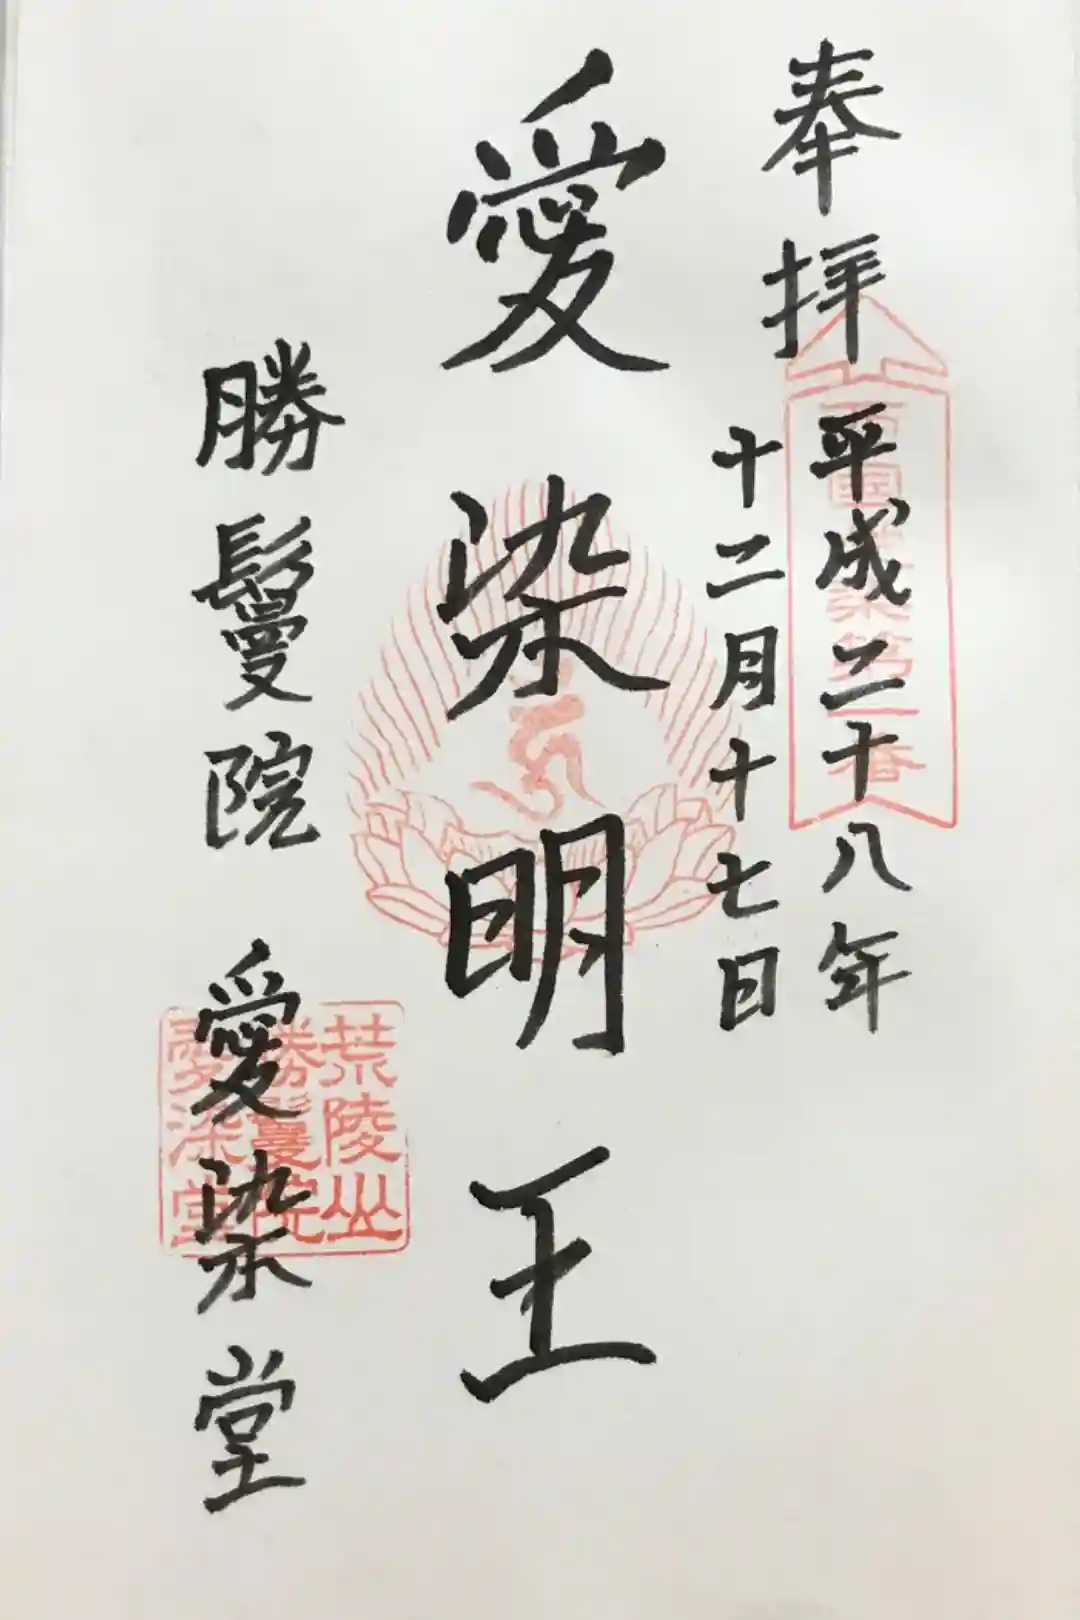 奉拝
平成二十八年
十二月十七日
西国愛染第一番
愛染明王
勝鬘院 愛染堂
荒陵山
勝鬘院
愛染堂